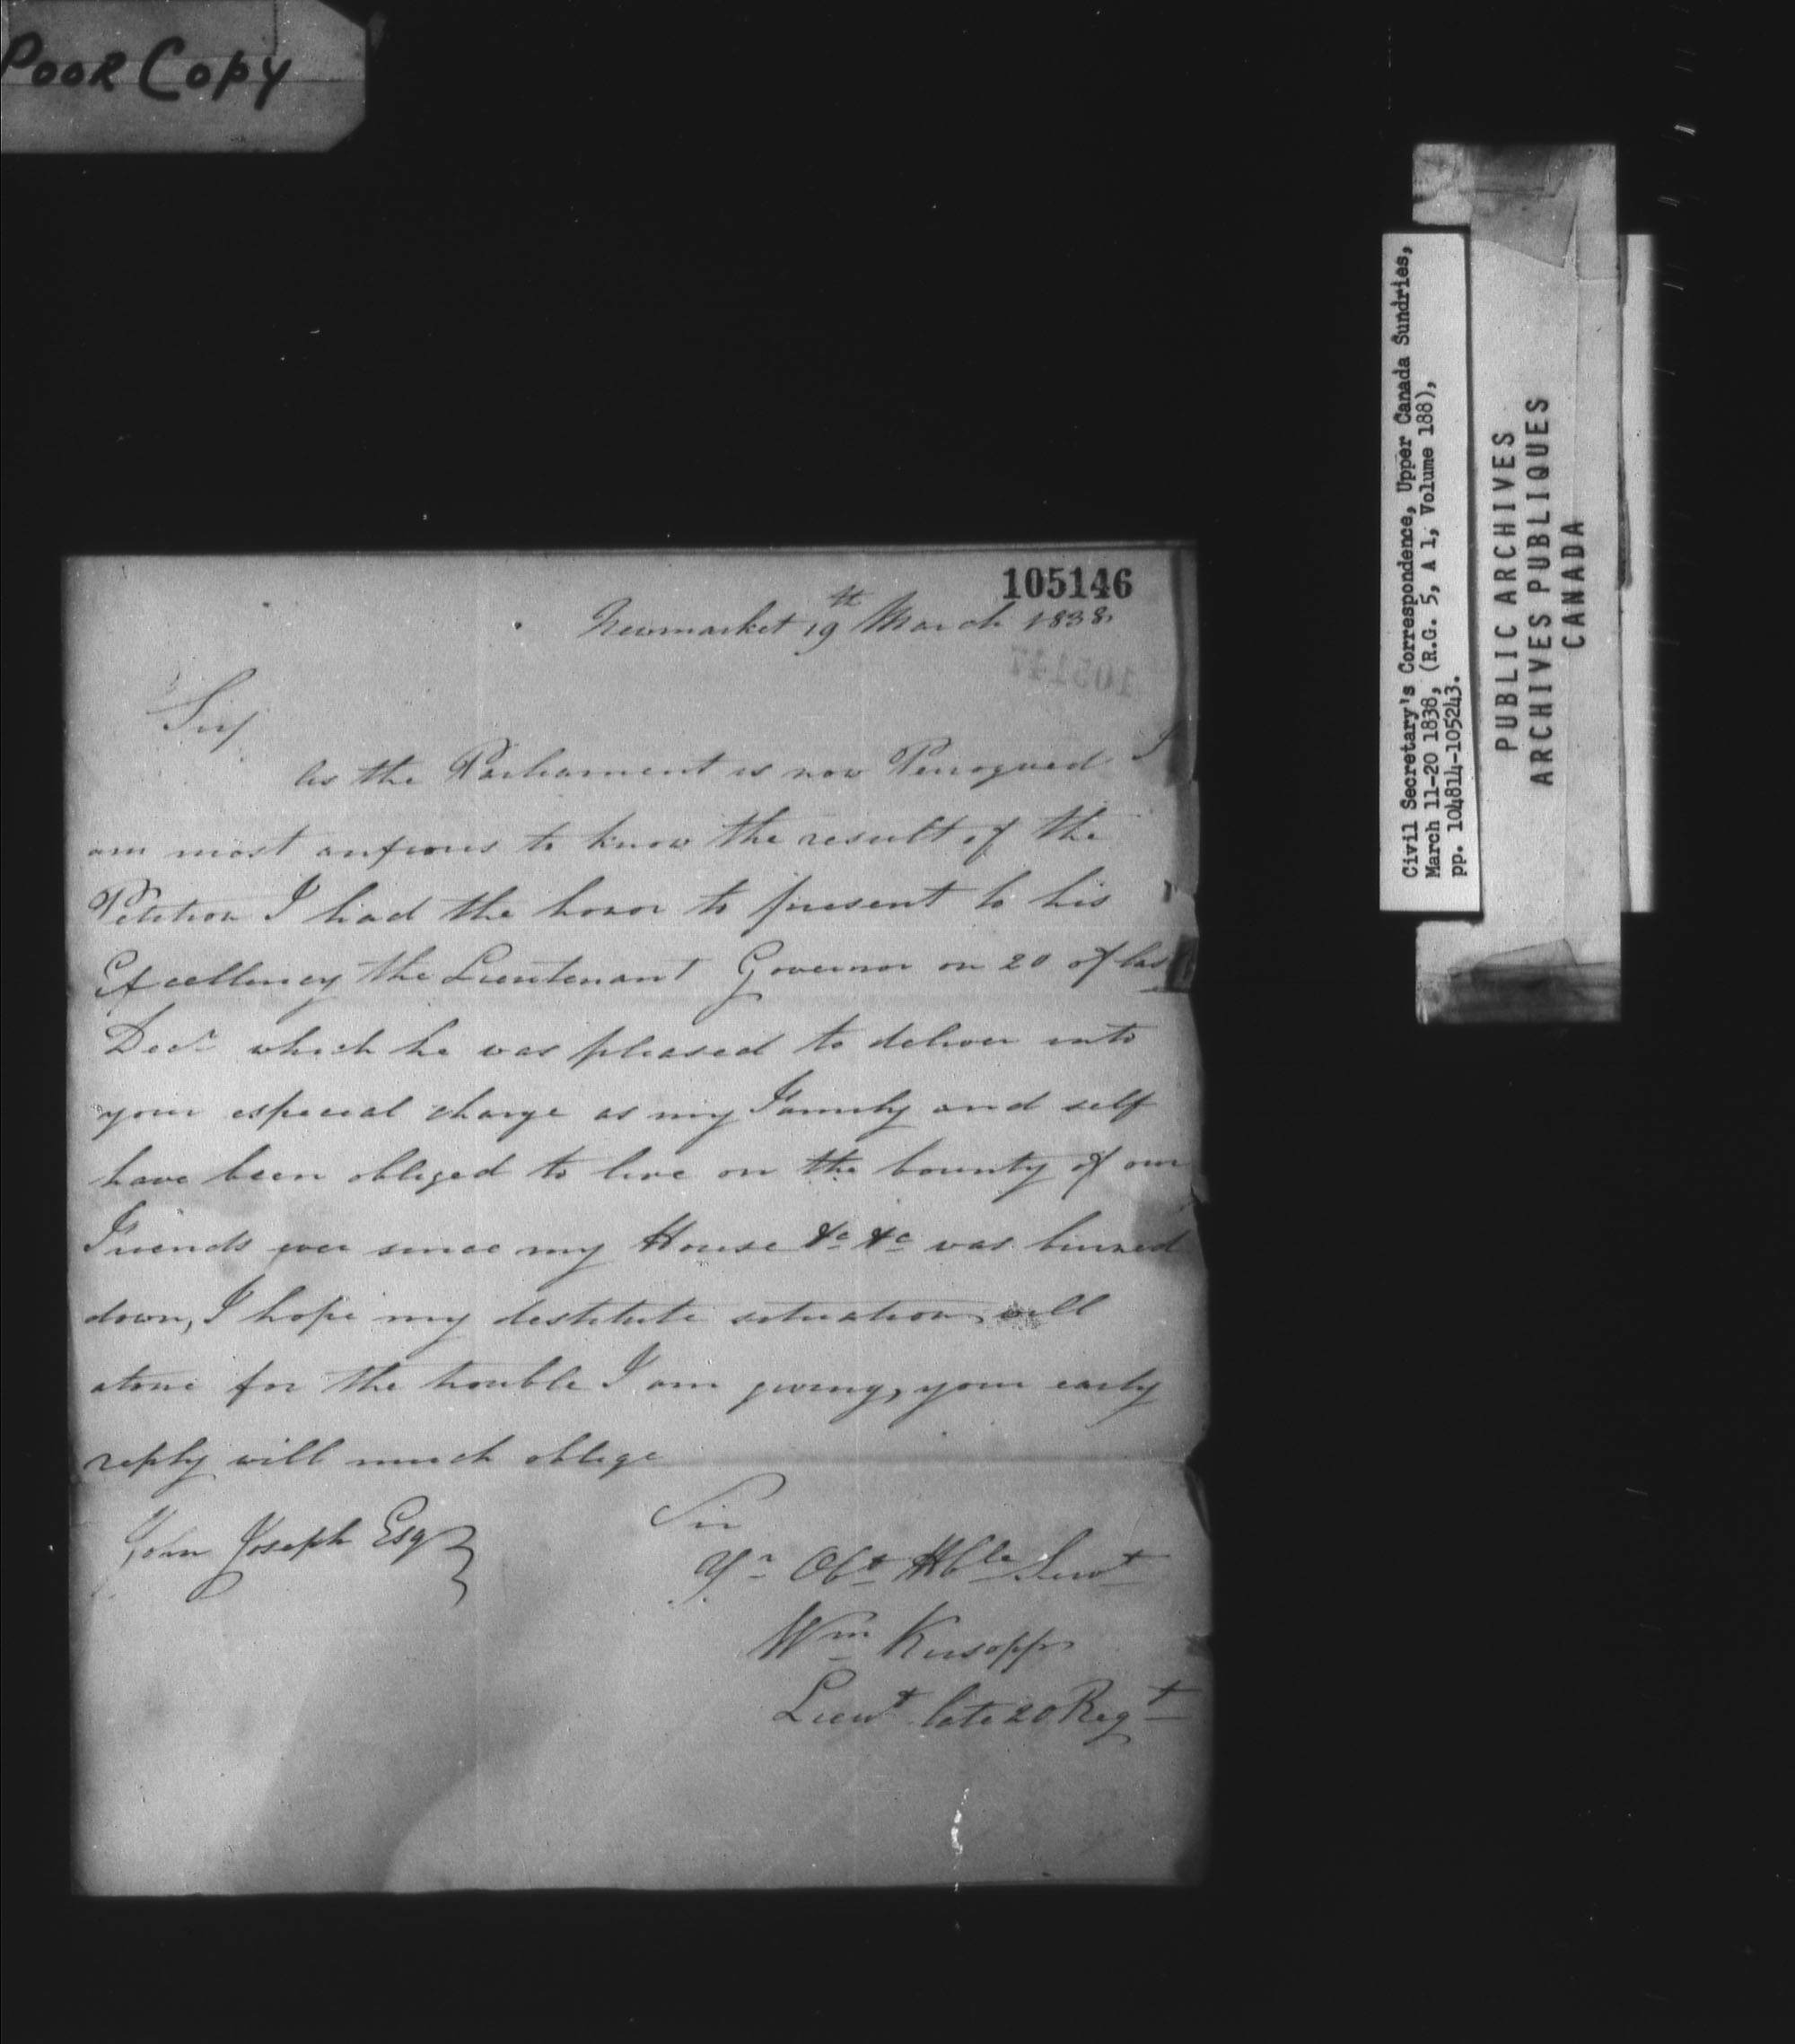 Poor Copy
105146
Newmarket 19th March 1838
105147
Sir
As the Parliament is now Perrogued I
am most anxious to know the result of the
Petition I had the honor to present to his
Excellency the Lieutenant Governor on 20 of las
Decr which he was pleased to deliver into
your especial charge as my Family and self
have been obliged to live on the bounty of our
Friends ever since my House &c &c was burned
down, I hope my destitute situation will
atone for the trouble I am giving, your early
reply will much oblige
Sir
John Joseph Esqr
Yr Obt Hble Servt
Wm
Lieut late 20 Regt
Civil Secretary's Correspondence, Upper Canada Sundries,
March 11-20 1838, (R.G. 5, A 1, Volume 188),
pp. 104814-105243.
PUBLIC ARCHIVES
ARCHIVES PUBLIQUES
CANADA